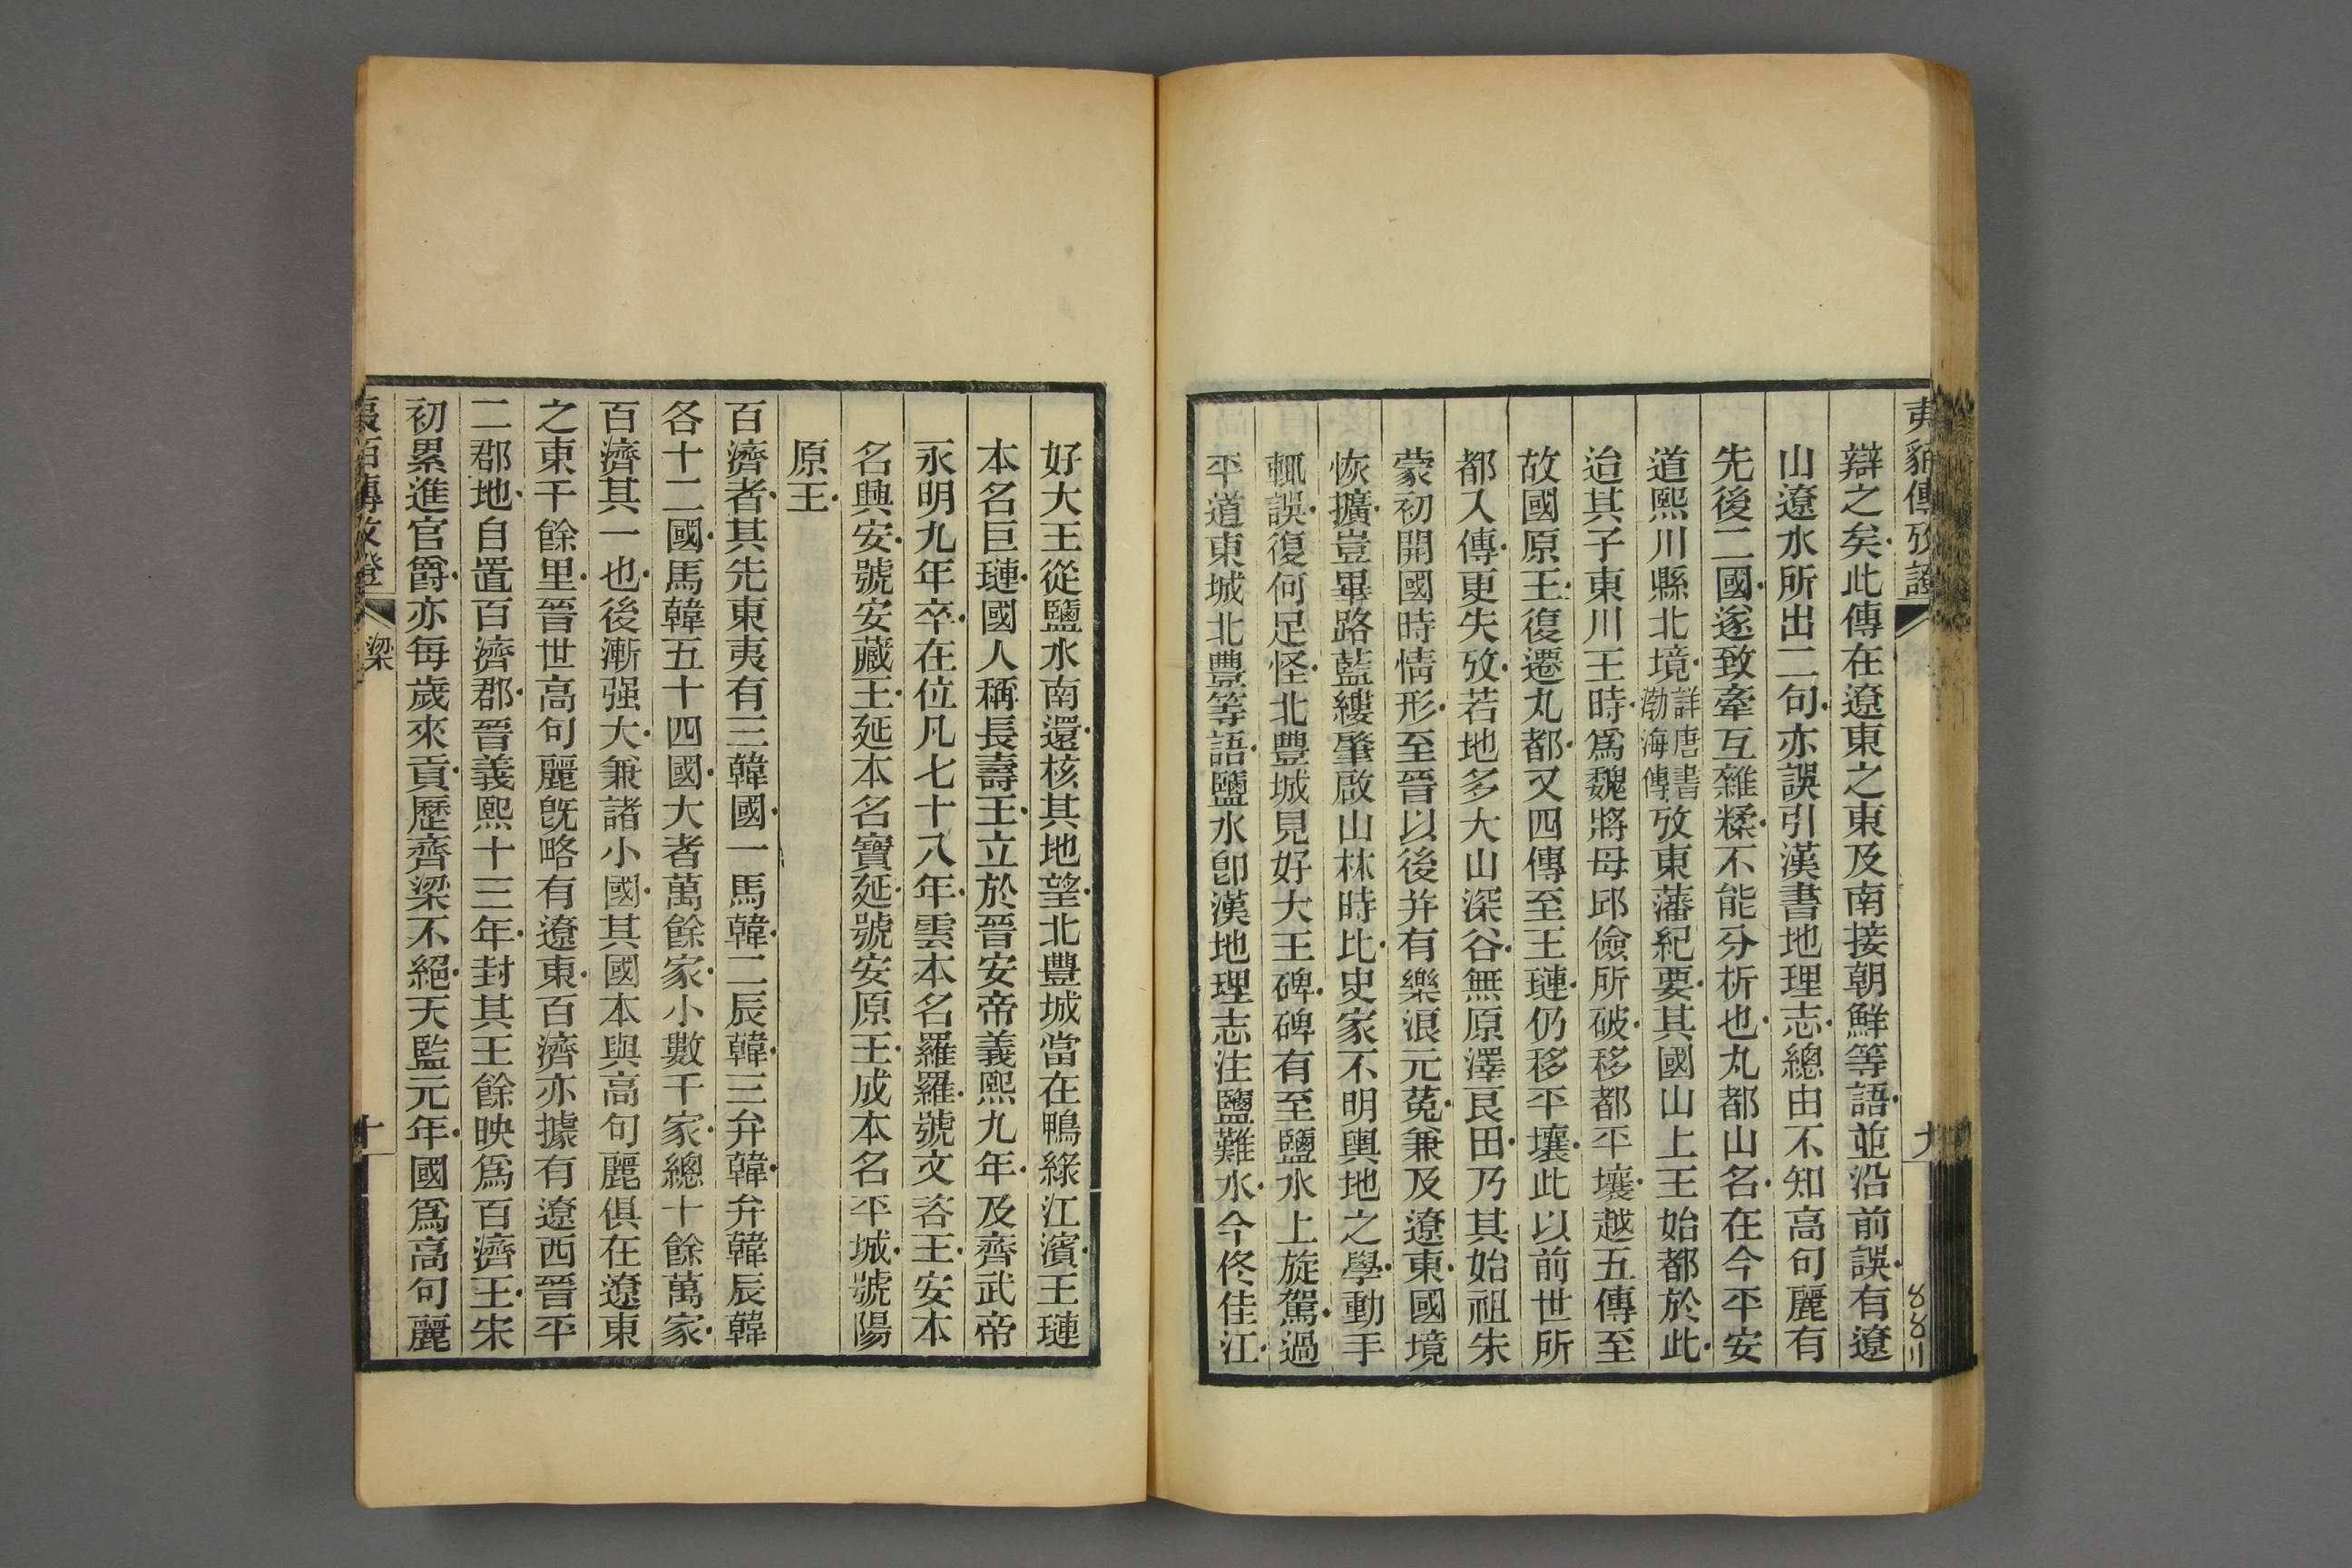 辯之矣此傳在遼東之東及南接朝鮮等語並沿前誤有遼
山遼水所出二句亦誤引漢書地理志總由不知高句麗有
先後二國遂致牽互雜糅不能分析也丸都山名在今平安
道熙川縣北境詳唐書渤海傳攷東藩紀要其國山上王始都於此
迨其子東川王時爲魏將母邱儉所破移都平壤越五傳至
故國原王復遷丸都又四傳至王璉仍移平壤此以前世所
都入傳更失攷若地多大山深谷無原澤良田乃其始祖朱
蒙初開國時情形至晉以後并有樂浪元菟兼及遼東國境
恢擴豈畢路藍縷肇啟山林時比史家不明輿地之學動手
輒誤復何足怪北豐城見好大王碑碑有至鹽水上旋駕過
平道東城北豐等語鹽水卽漢地理志注鹽難水今佟佳江
夷貊傳攷證
九
8681
好大王從鹽水南還核其地望北豐城當在鴨綠江濱王璉
本名巨璉國人稱長壽王立於晉安帝義熙九年及齊武帝
永明九年卒在位凡七十八年雲本名羅羅號文咨王安本
名興安號安藏王延本名寶延號安原王成本名平城號陽
原王
百濟者其先東夷有三韓國一馬韓二辰韓三弁韓弁韓辰韓
各十二國馬韓五十四國大者萬餘家小數千家總十餘萬家
百濟其一也後漸强大兼諸小國其國本與高句麗俱在遼東
之東千餘里晉世高句麗既略有遼東百濟亦據有遼西晉平
二郡地自置百濟郡晉義熙十三年封其王餘映爲百濟王宋
初累進官爵亦每歲來貢歷齊梁不絕天監元年國爲高句麗
夷貊傳攷證
梁
十